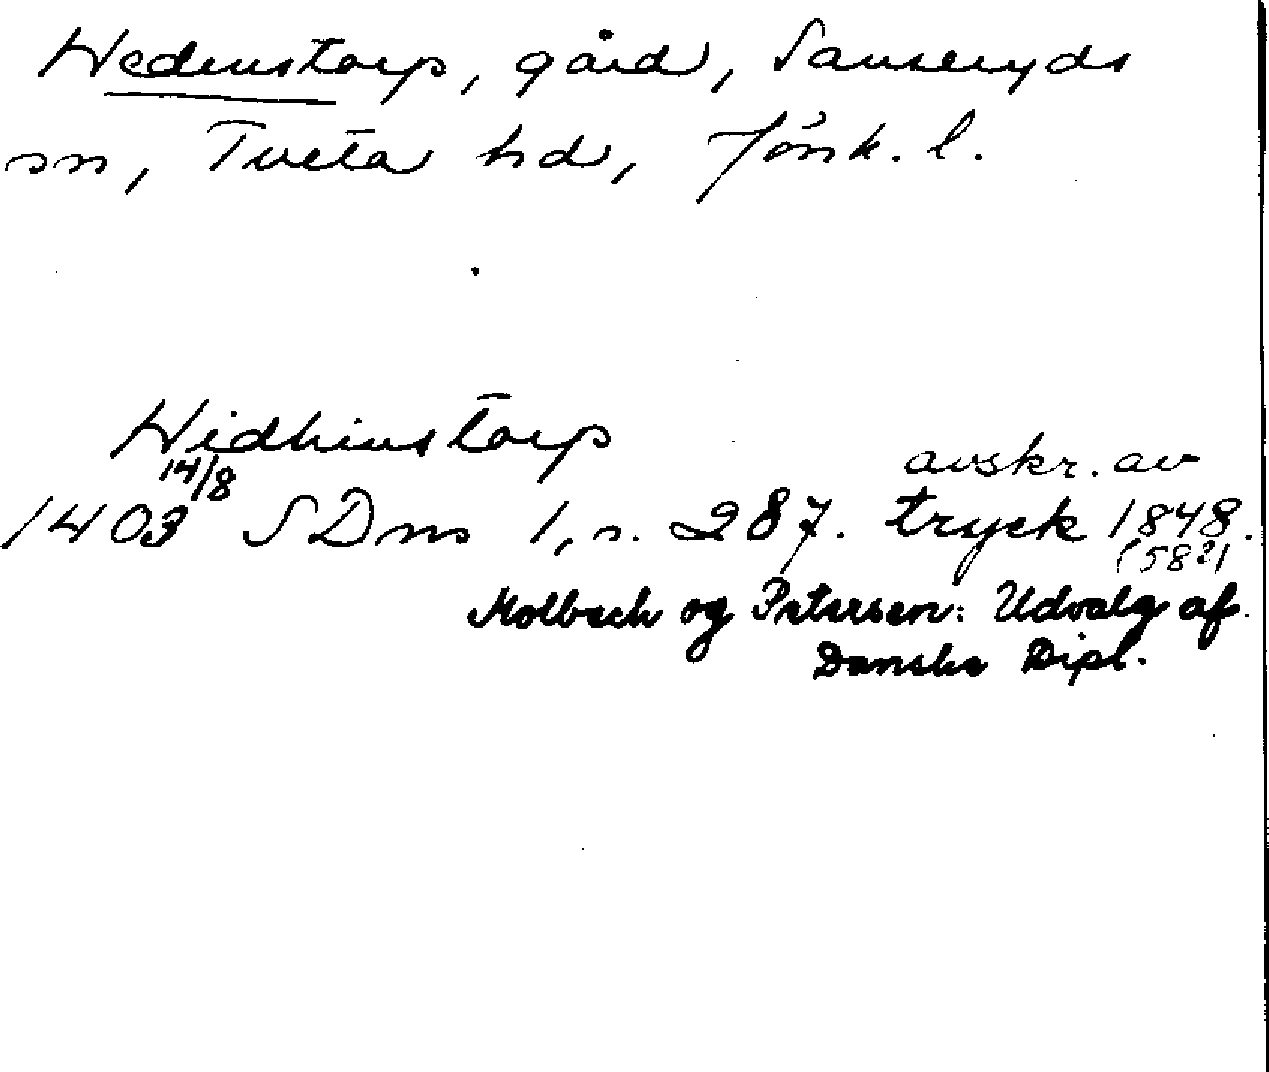 Wedenstorp, gård, Sanseryds
sn, Tveta hd, Jönk. l.
Widhinstorp
14/8 avskr. av
1403 SDns 1, s. 287. tryck 1848.
(582)
Molbech og Petersen: Udvalg af
Danske Dipl.